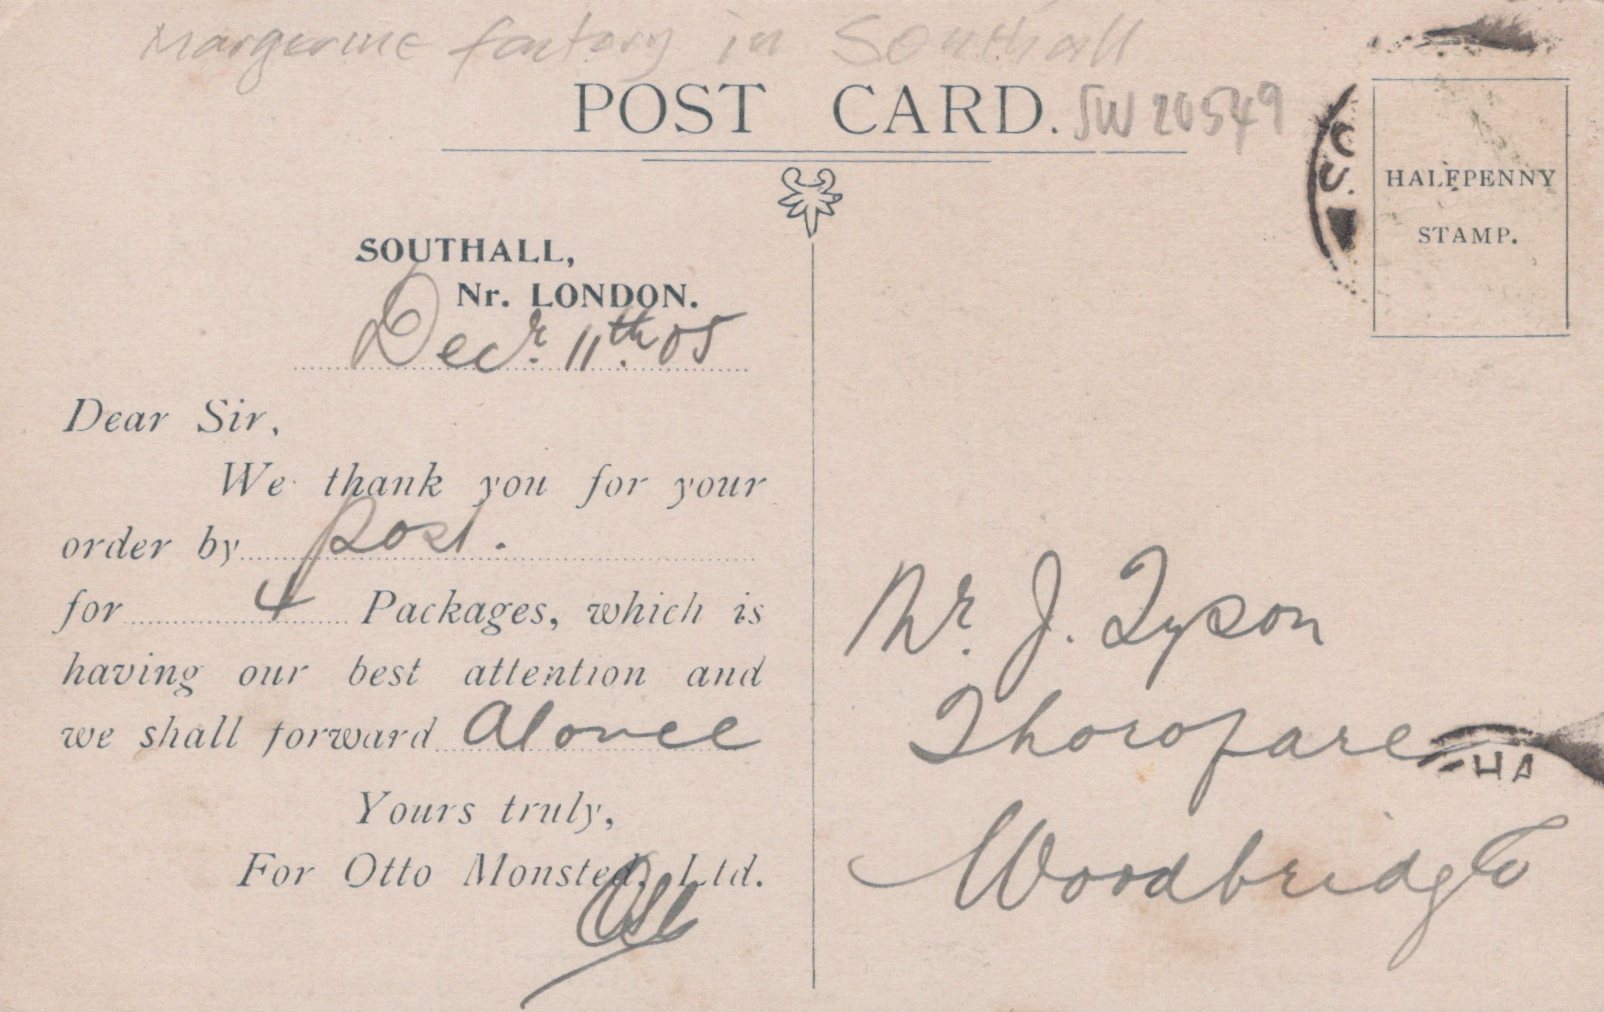 Margerine factory in Southall
POST CARD.
SW 20549
HALFPENNY
STAMP.
SOUTHALL,
Nr. LONDON.
Decr. 11th. 05
Dear Sir,
We thank you for your
order by post.
for 4 Packages, which is
having our best attention and
we shall forward at once
Yours truly,
For Otto Monsted, Ltd.
Mr. J. Tyson
Thorofare
Woodbridge